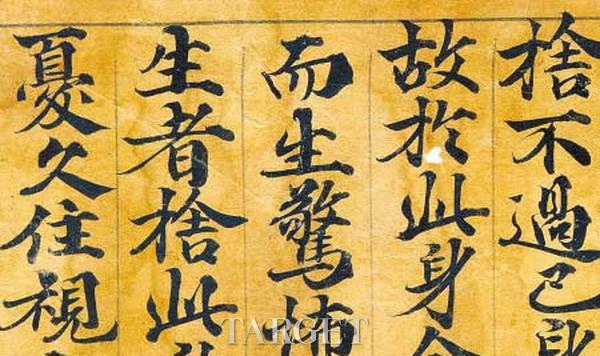 捨不過己
故於此身
而生驚怖
生者捨此
憂久住視
TARGET